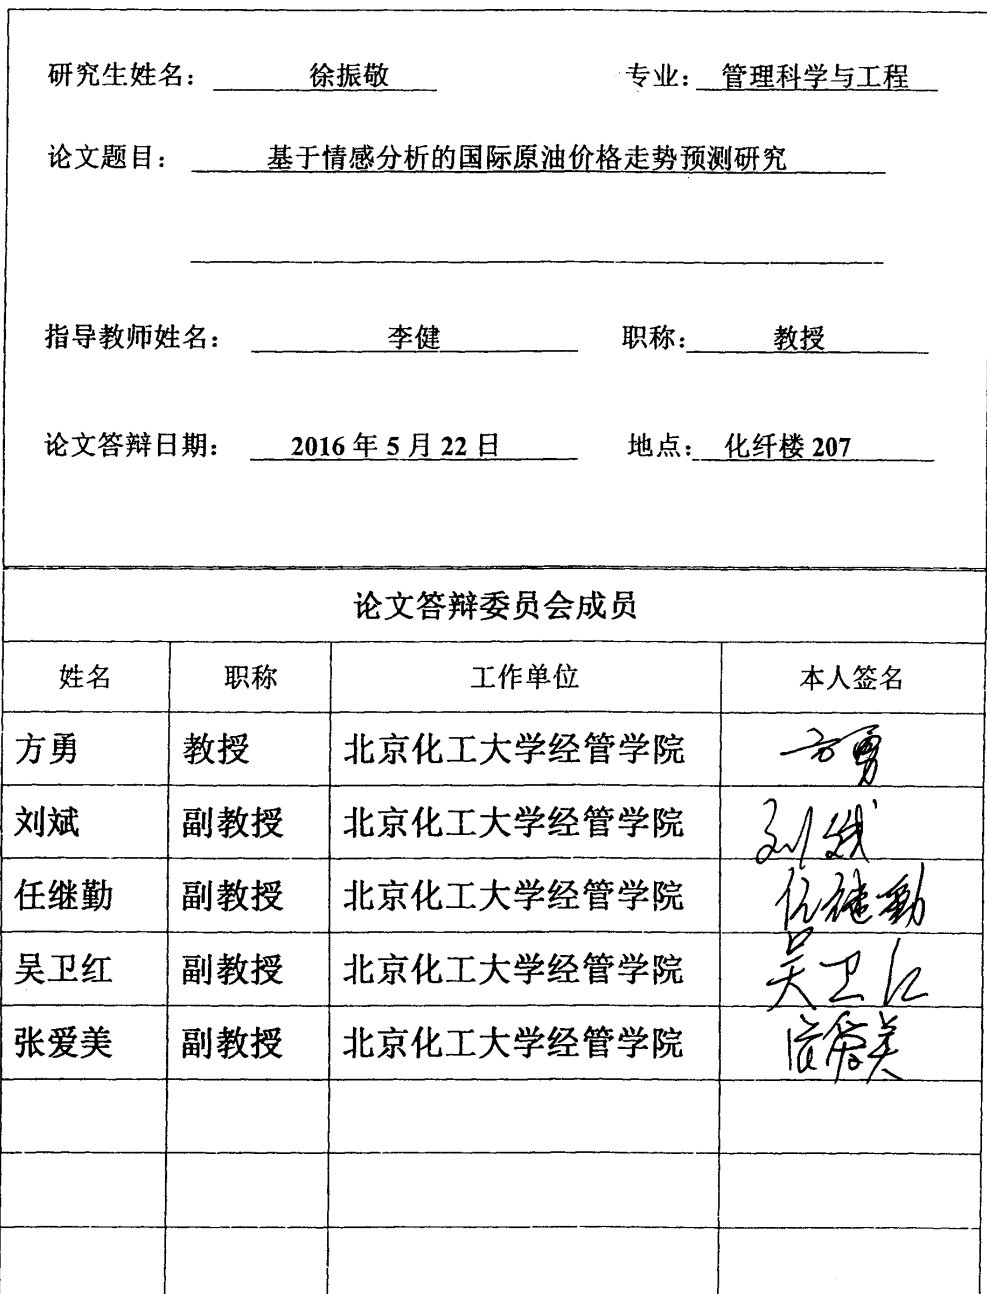 研究生姓名： 徐振敬 专业： 管理科学与工程
论文题目： 基于情感分析的国际原油价格走势预测研究
指导教师姓名： 李健 职称： 教授
论文答辩日期： 2016 年 5 月 22 日 地点： 化纤楼 207
论文答辩委员会成员
姓名 职称 工作单位 本人签名
方勇 教授 北京化工大学经管学院 方勇
刘斌 副教授 北京化工大学经管学院 刘斌
任继勤 副教授 北京化工大学经管学院 任继勤
吴卫红 副教授 北京化工大学经管学院 吴卫红
张爱美 副教授 北京化工大学经管学院 张爱美